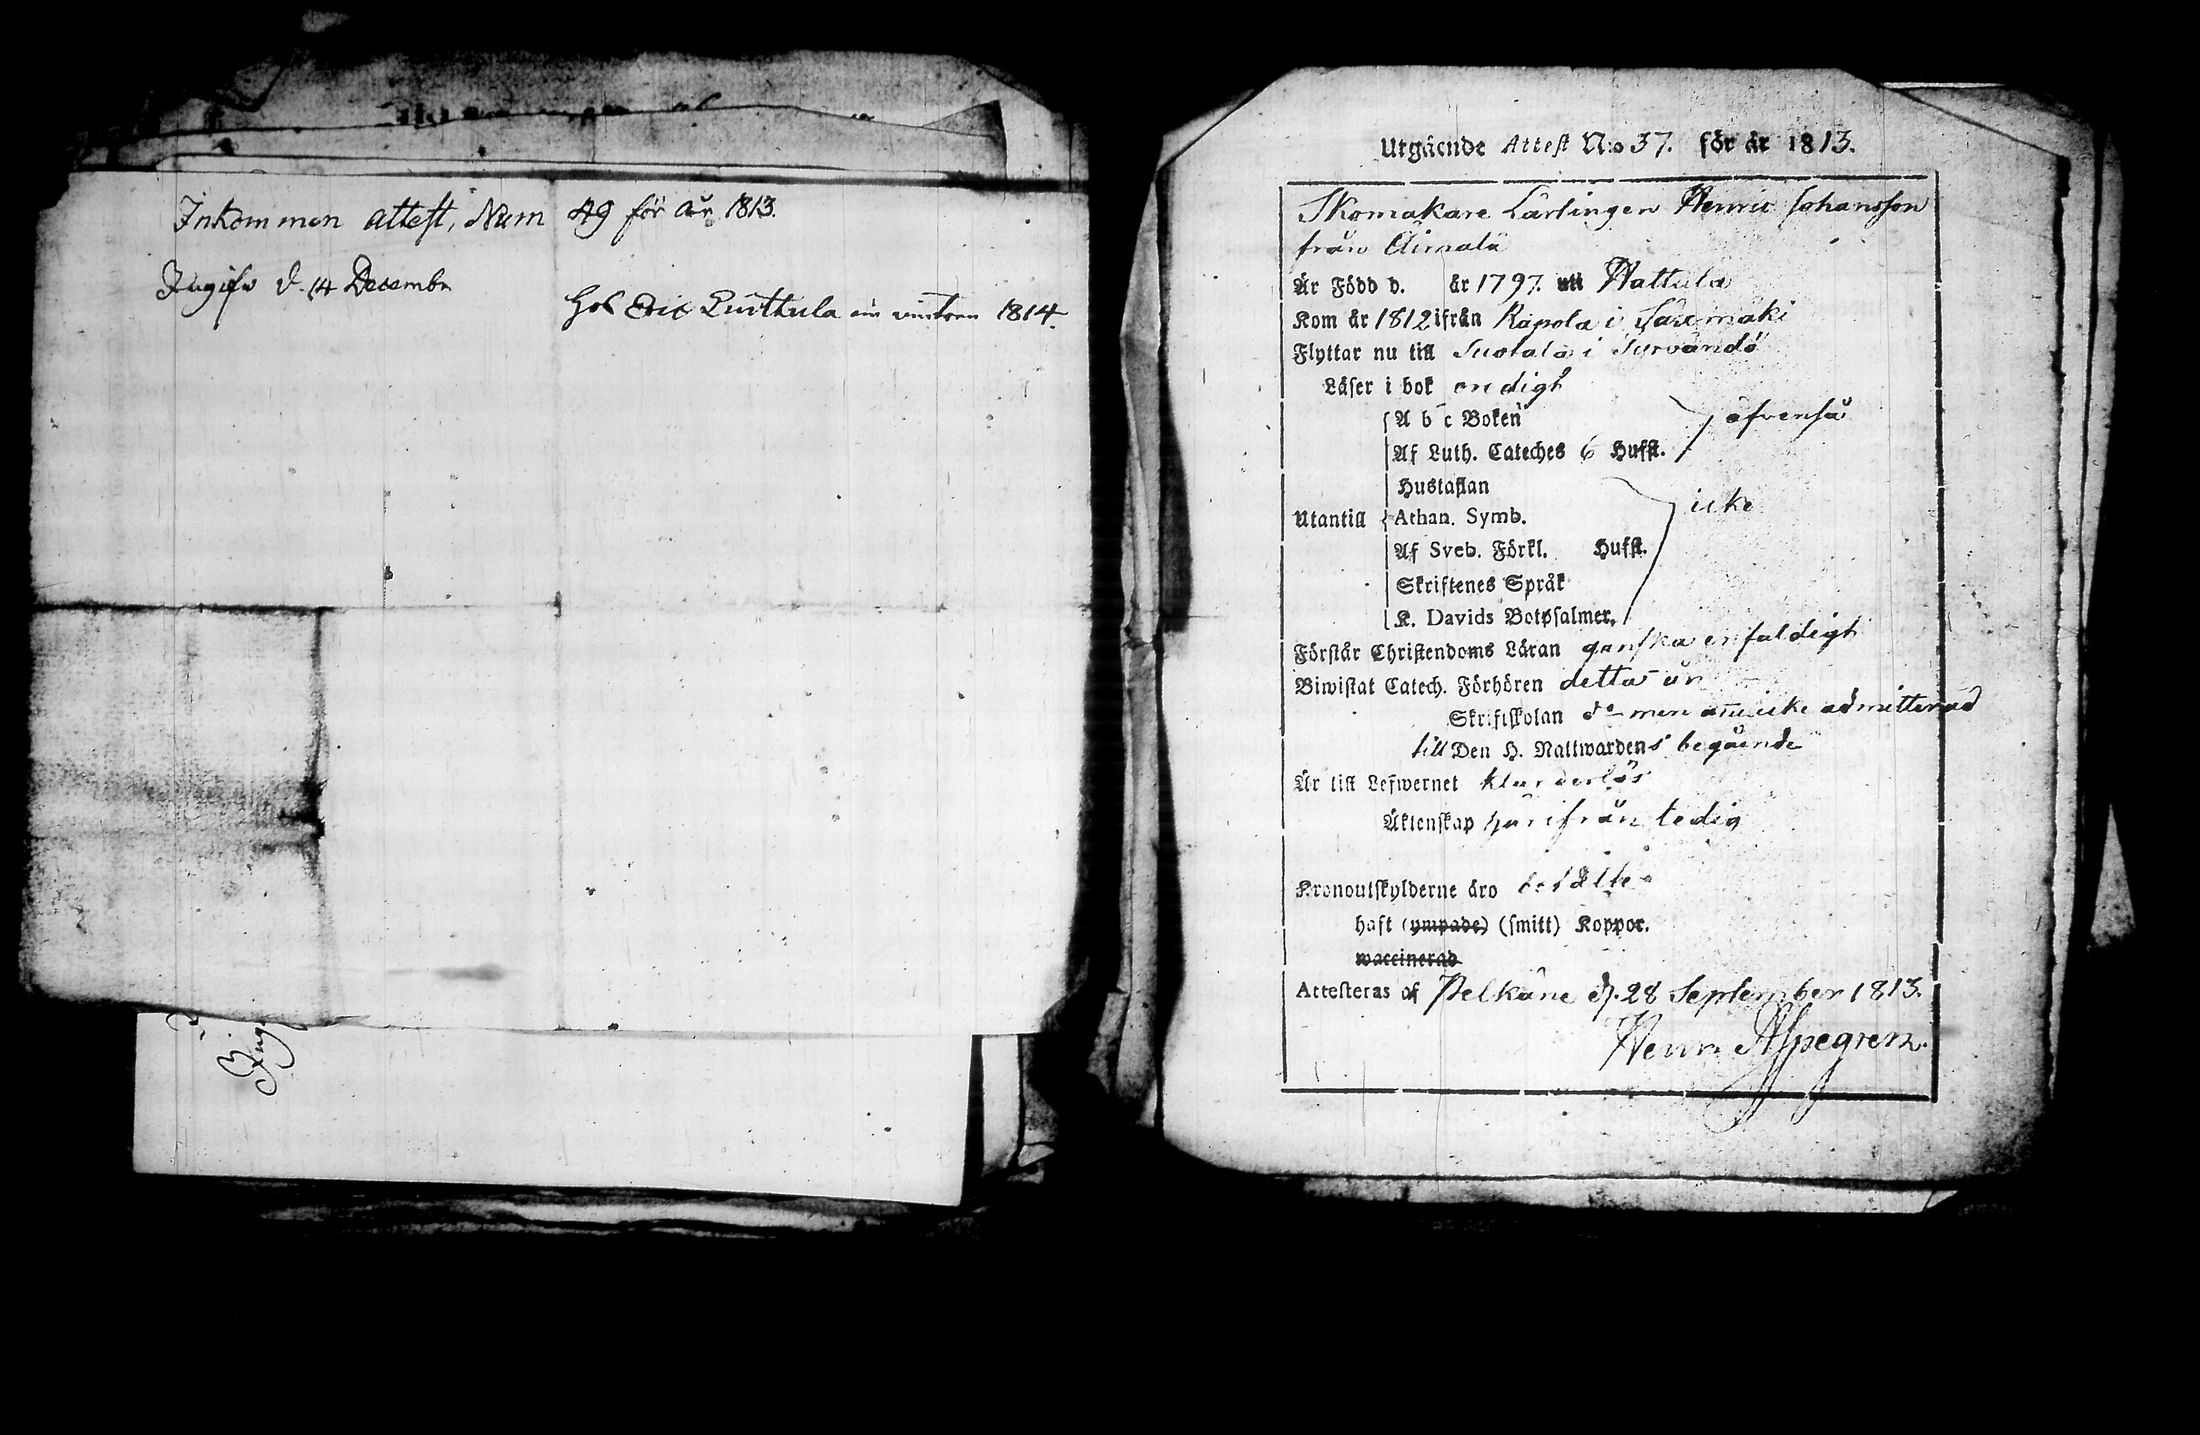 Inkommen attest, Num 49 för År 1813.
Ingifv d. 14 Decembr
hos Eric Quithula om vintern 1814.
Ing
Utgående Attest N:o 37. för år 1813.
Skomakare Lärlingen Henric Johansson
från Aimälä
Är Född d. år 1797. uti Wattula
Kom år 1812 ifrån Rapola i Saxmäki
Flyttar nu till Suotala i Tyrvändö
Läser i bok endigt
A b c Boken
äfvenså
Af Luth. Cateches 6 Hufst.
Hustaflan
icke
Utantill Athan. Symb.
Af Sveb. Förkl. Hufst.
Skriftenes Språk
K. Davids Botpsalmer.
Förstår Christendoms Läran ganska enfaldigt
Biwistat Catech. Förhören detta år
Skriftskolan do men ännu icke admitterad
till Den H. Nattwardens begående
Är till Lefwernet klanderlös
Äktenskap härifrån ledig
Kronoutskylderne äro betalte
haft (ympade) (smitt) Koppor.
waccinerad
Attesteras af Pelkäne d. 28 September 1813.
Henr. Aspegren.